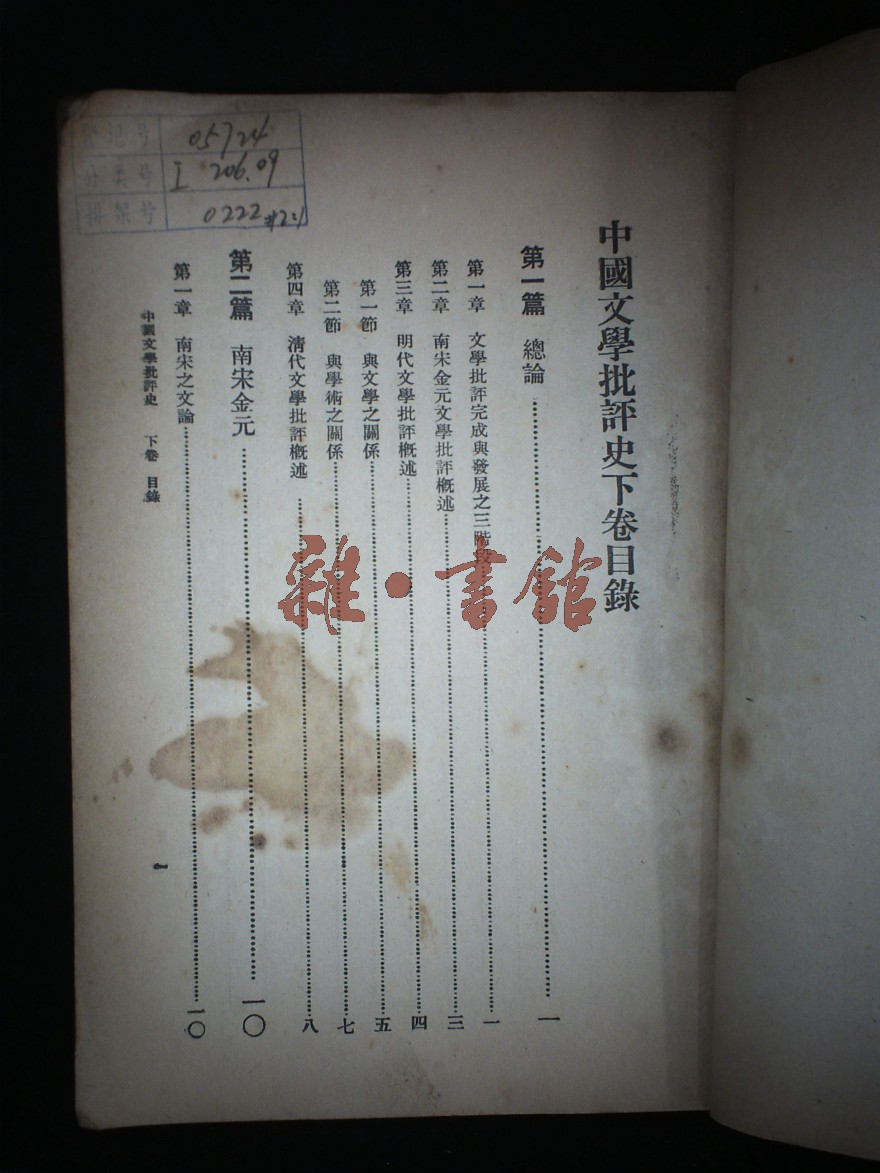 中國文學批評史下卷目錄
第一篇 總論……一
第一章 文學批評完成與發展之三階段……一
第二章 南宋金元文學批評概述……三
第三章 明代文學批評概述……四
第一節 與文學之關係……五
第二節 與學術之關係……七
第四章 清代文學批評概述……八
第二篇 南宋金元……一〇
第一章 南宋之文論……一〇
中國文學批評史 下卷 目錄
一
登記号 05724
分类号 I 206.09
排架号 0222 #2:1
雜·書館